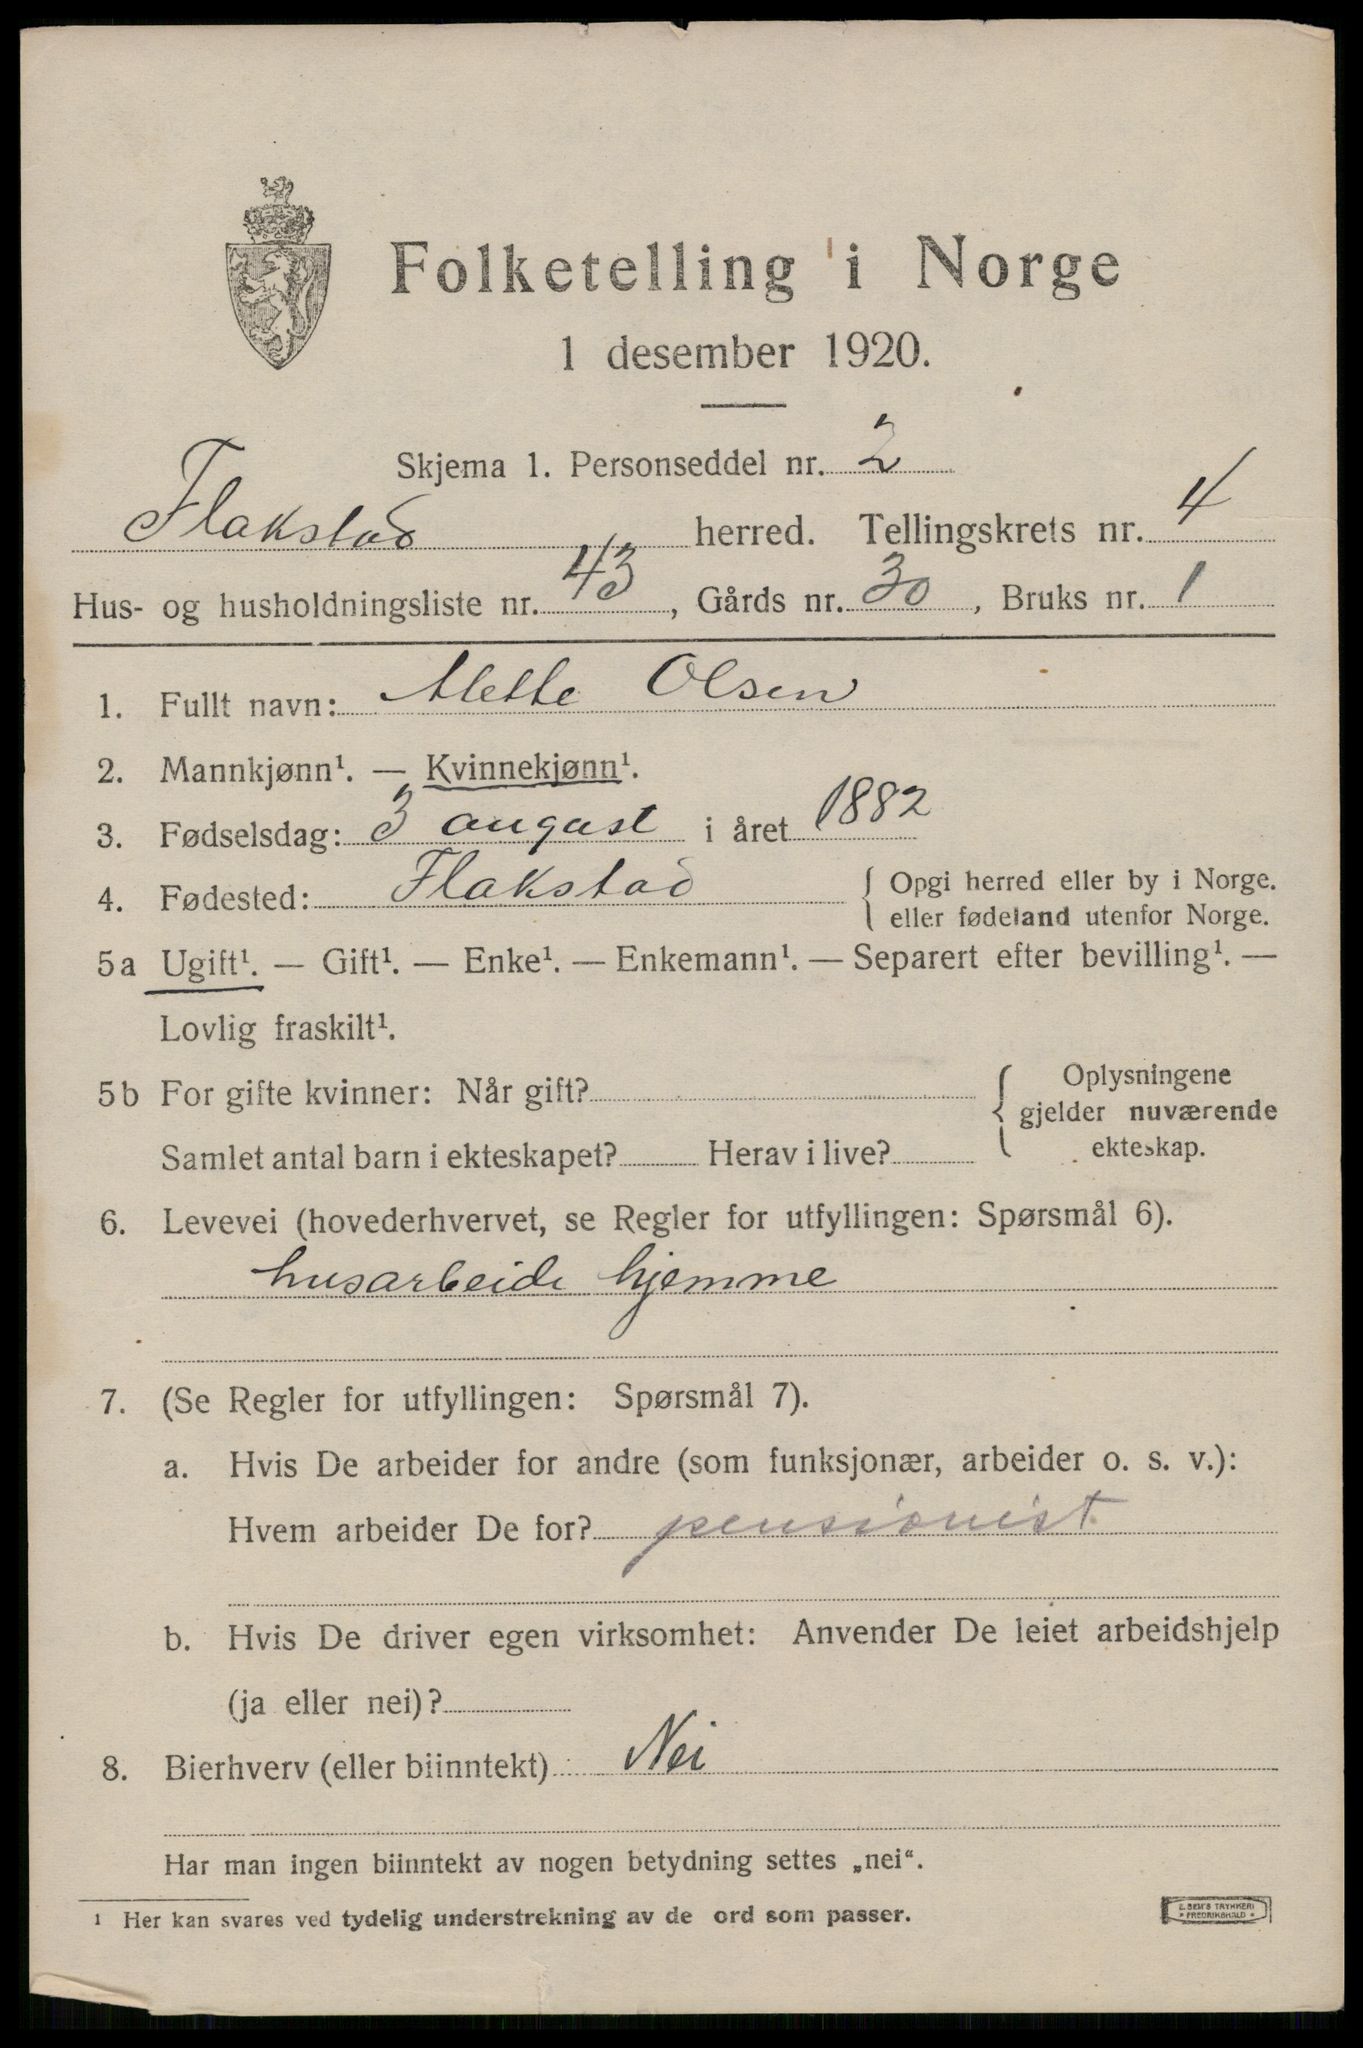 Folketelling i Norge
1 desember 1920.
Skjema 1. Personseddel nr. 2
Flakstad herred. Tellingskrets nr. 4
Hus- og husholdningsliste nr. 43, Gårds nr. 30, Bruks nr. 1
1. Fullt navn: Alette Olsen
2. Mannkjønn¹. — Kvinnekjønn¹.
3. Fødselsdag: 3 august i året 1882
4. Fødested: Flakstad { Opgi herred eller by i Norge.
eller fødeland utenfor Norge.
5a Ugift¹. — Gift¹. — Enke¹. — Enkemann¹. — Separert efter bevilling¹. —
Lovlig fraskilt¹.
5b For gifte kvinner: Når gift?
Samlet antal barn i ekteskapet? Herav i live?
{ Oplysningene
gjelder nuværende
ekteskap.
6. Levevei (hovederhvervet, se Regler for utfyllingen: Spørsmål 6).
husarbeide hjemme
7. (Se Regler for utfyllingen: Spørsmål 7).
a. Hvis De arbeider for andre (som funksjonær, arbeider o. s. v.):
Hvem arbeider De for? pensionist
b. Hvis De driver egen virksomhet: Anvender De leiet arbeidshjelp
(ja eller nei)?
8. Bierhverv (eller biinntekt) Nei
Har man ingen biinntekt av nogen betydning settes „nei“.
¹ Her kan svares ved tydelig understrekning av de ord som passer.
E. SEM'S TRYKKERI
* FREDRIKSHALD *